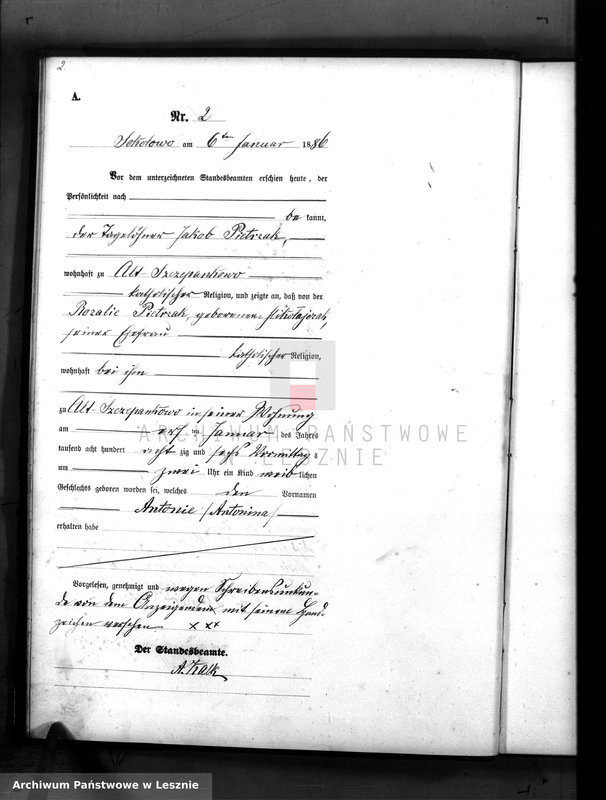 2
A.
Nr. 2
Sokolowo am 6ten Januar 1886
Vor dem unterzeichneten Standesbeamten erschien heute, der
Persönlichkeit nach
be kannt,
der Tagelöhner Jakob Pietrzak,
wohnhaft zu Alt-Szczepankowo
katholischer Religion, und zeigte an, daß von der
Rozalie Pietrzak, geborenen Mikołajczak,
seiner Ehefrau
katholischer Religion,
wohnhaft bei ihm
zu Alt-Szczepankowo in seiner Wohnung
am ersten Januar des Jahres
tausend acht hundert acht zig und sechs Vormittags
um zwei Uhr ein Kind weib lichen
Geschlechts geboren worden sei, welches den Vornamen
Antonie /Antonina/
erhalten habe
Vorgelesen, genehmigt und wegen Schreibensunkun-
de von dem Anzeigenden mit seinem Hand-
zeichen versehen x xx
Der Standesbeamte.
ARCHIWUM PAŃSTWOWE
W LESZNIE
Archiwum Państwowe w Lesznie